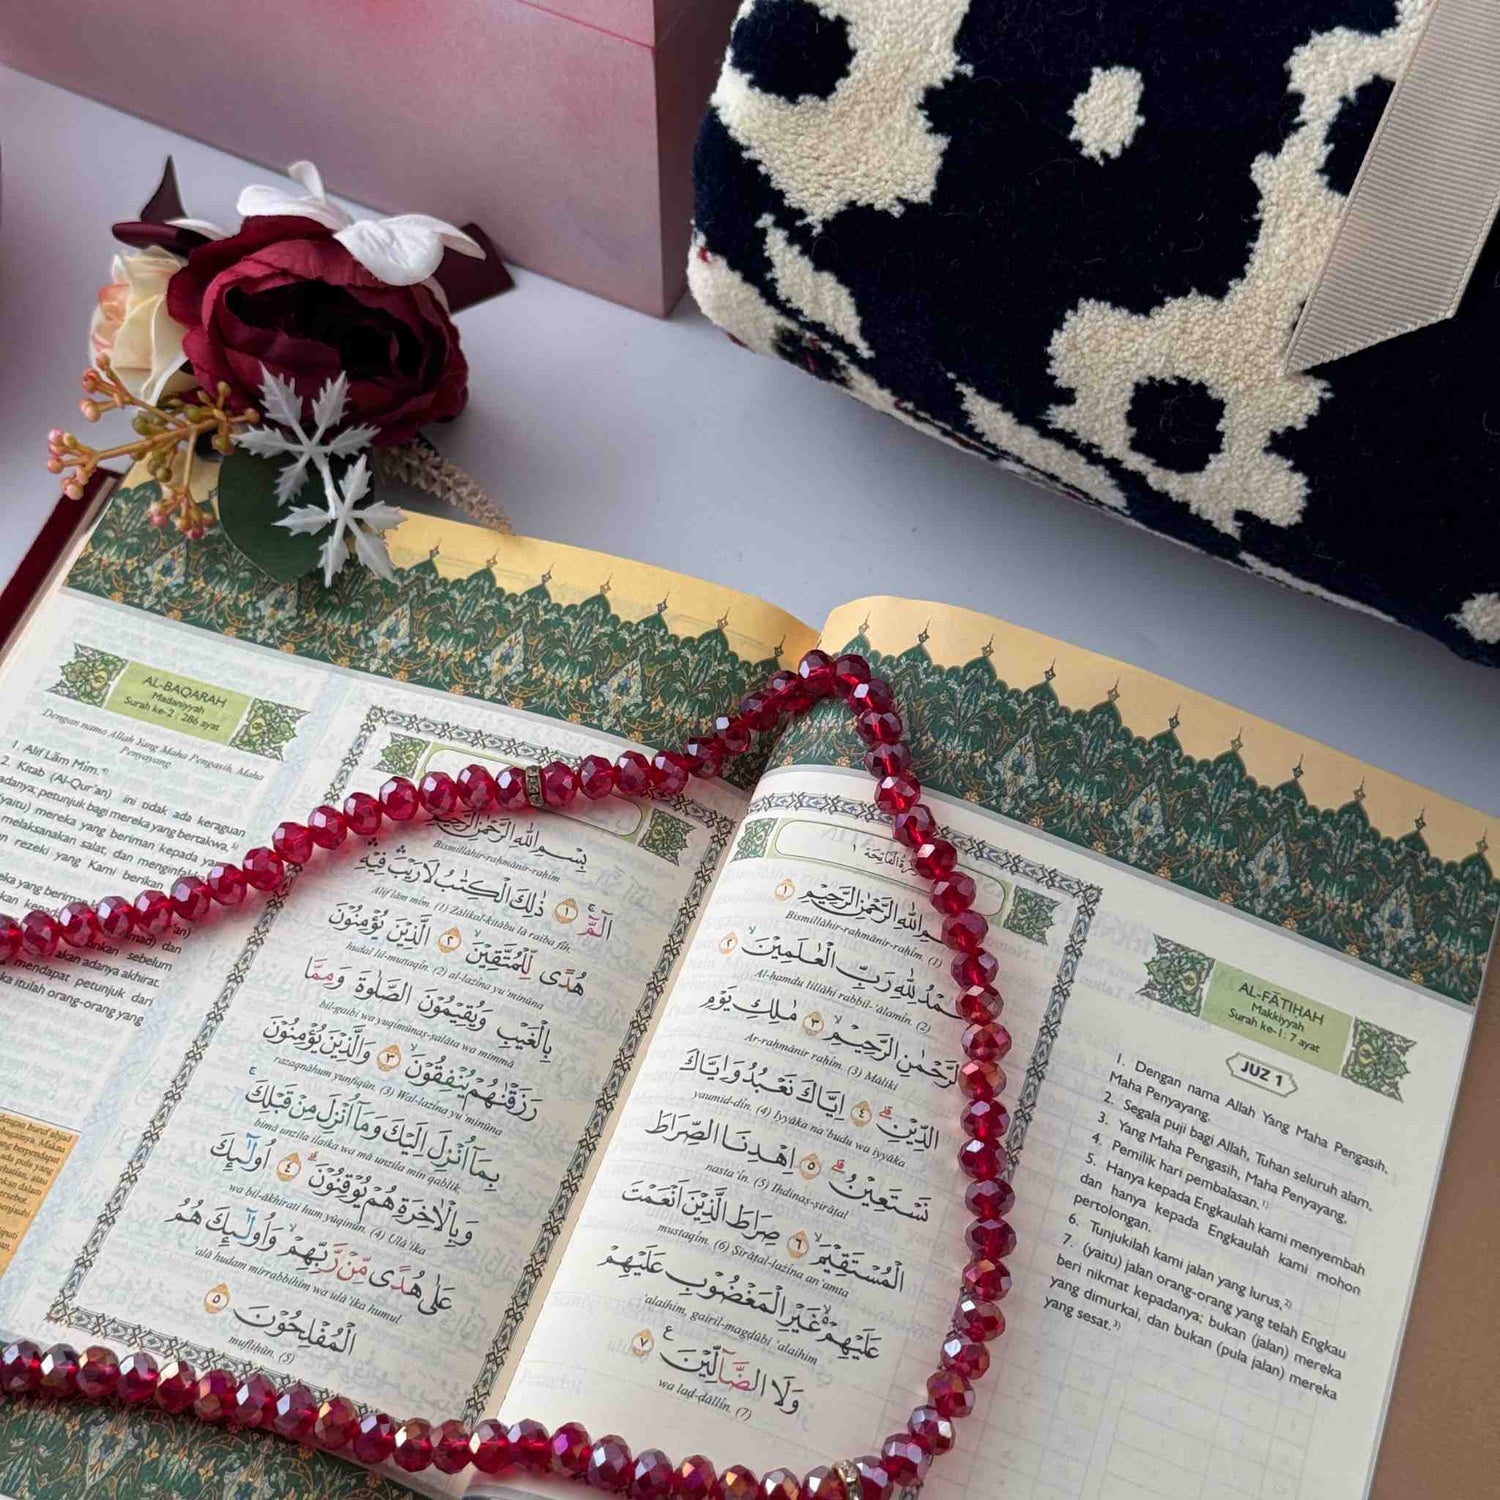 AL-BAQARAH
Madaniyyah
Surah ke-2 : 286 ayat
Dengan nama Allah Yang Maha Pengasih, Maha
Penyayang
1. Alif Lām Mīm.
2. Kitab (Al-Qur'an) ini tidak ada keraguan
petunjuk bagi mereka yang bertakwa,
(yaitu) mereka yang beriman kepada
melaksanakan salat, dan menginfak
rezeki yang Kami berikan
yang beriman
dan
sebelum
akan adanya akhirat.
mendapat petunjuk dari
itulah orang-orang yang
بِسْمِ اللّٰهِ الرَّحْمٰنِ الرَّحِيْمِ
Bismillāhir-raḥmānir-raḥīm
الۤمّۤ ۚ ١ ذٰلِكَ الْكِتٰبُ لَا رَيْبَ ۛ فِيْهِ ۛ
Alif lām mīm. (1) Żālikal-kitābu lā raiba fīh,
هُدًى لِّلْمُتَّقِيْنَ ۙ ٢ الَّذِيْنَ يُؤْمِنُوْنَ
hudal lil-muttaqīn. (2) al-lażīna yu'minūna
بِالْغَيْبِ وَيُقِيْمُوْنَ الصَّلٰوةَ وَمِمَّا
bil-gaibi wa yuqīmūnaṣ-ṣalāta wa mimmā
رَزَقْنٰهُمْ يُنْفِقُوْنَ ۙ ٣ وَالَّذِيْنَ يُؤْمِنُوْنَ
razaqnāhum yunfiqūn. (3) Wal-lażīna yu'minūna
بِمَآ اُنْزِلَ اِلَيْكَ وَمَآ اُنْزِلَ مِنْ قَبْلِكَ ۚ
bimā unzila ilaika wa mā unzila min qablik
وَبِالْاٰخِرَةِ هُمْ يُوْقِنُوْنَ ۗ ٤ اُولٰۤىِٕكَ
wa bil-ākhirati hum yūqinūn. (4) Ulā'ika
عَلٰى هُدًى مِّنْ رَّبِّهِمْ ۙ وَاُولٰۤىِٕكَ هُمُ
'alā hudam mirrabbihim wa ulā'ika humul
الْمُفْلِحُوْنَ ٥
mufliḥūn. (5)
الْفَاتِحَة ١
اللّٰهِ الرَّحْمٰنِ الرَّحِيْمِ ١
Bismillāhir-raḥmānir-raḥīm. (1)
لِلّٰهِ رَبِّ الْعٰلَمِيْنَ ۙ ٢
Al-ḥamdu lillāhi rabbil-'ālamīn. (2)
الرَّحْمٰنِ الرَّحِيْمِ ۙ ٣ مٰلِكِ يَوْمِ
Ar-raḥmānir raḥīm. (3) Māliki
الدِّيْنِ ۗ ٤ اِيَّاكَ نَعْبُدُ وَاِيَّاكَ
yaumid-dīn. (4) Iyyāka na'budu wa iyyāka
نَسْتَعِيْنُ ۗ ٥ اِهْدِنَا الصِّرَاطَ
nasta'īn. (5) Ihdinaṣ-ṣirāṭal
الْمُسْتَقِيْمَ ۙ ٦ صِرَاطَ الَّذِيْنَ اَنْعَمْتَ
mustaqīm. (6) Ṣirāṭal-lażīna an'amta
عَلَيْهِمْ ەۙ غَيْرِ الْمَغْضُوْبِ عَلَيْهِمْ
'alaihim, gairil-magḍūbi 'alaihim
وَلَا الضَّاۤلِّيْنَ ࣖ ٧
wa laḍ-ḍāllīn. (7)
AL-FĀTIḤAH
Makkiyyah
Surah ke-1 : 7 ayat
JUZ 1
1. Dengan nama Allah Yang Maha Pengasih,
Maha Penyayang.
2. Segala puji bagi Allah, Tuhan seluruh alam,
3. Yang Maha Pengasih, Maha Penyayang,
4. Pemilik hari pembalasan.¹⁾
5. Hanya kepada Engkaulah kami menyembah
dan hanya kepada Engkaulah kami mohon
pertolongan.
6. Tunjukilah kami jalan yang lurus,²⁾
7. (yaitu) jalan orang-orang yang telah Engkau
beri nikmat kepadanya; bukan (jalan) mereka
yang dimurkai, dan bukan (pula jalan) mereka
yang sesat.³⁾